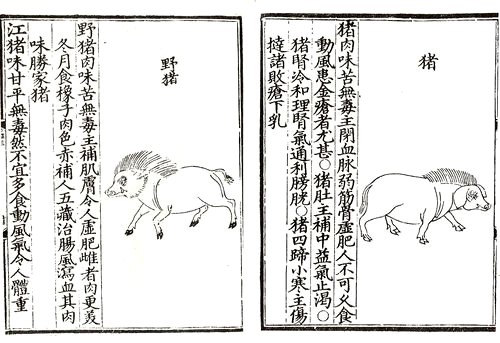 猪
猪肉味苦無毒主閉血脉弱筋骨虛肥人不可乆食
動風患金瘡者尤甚○猪肚主補中益氣止渴○
猪腎冷和理腎氣通利膀胱○猪四蹄小寒主傷
撻諸敗瘡下乳
野猪
野猪肉味苦無毒主補肌膚令人虛肥雌者肉更美
冬月食橡子肉色赤補人五藏治腸風瀉血其肉
味勝家猪
江猪味甘平無毒然不宜多食動風氣令人體重